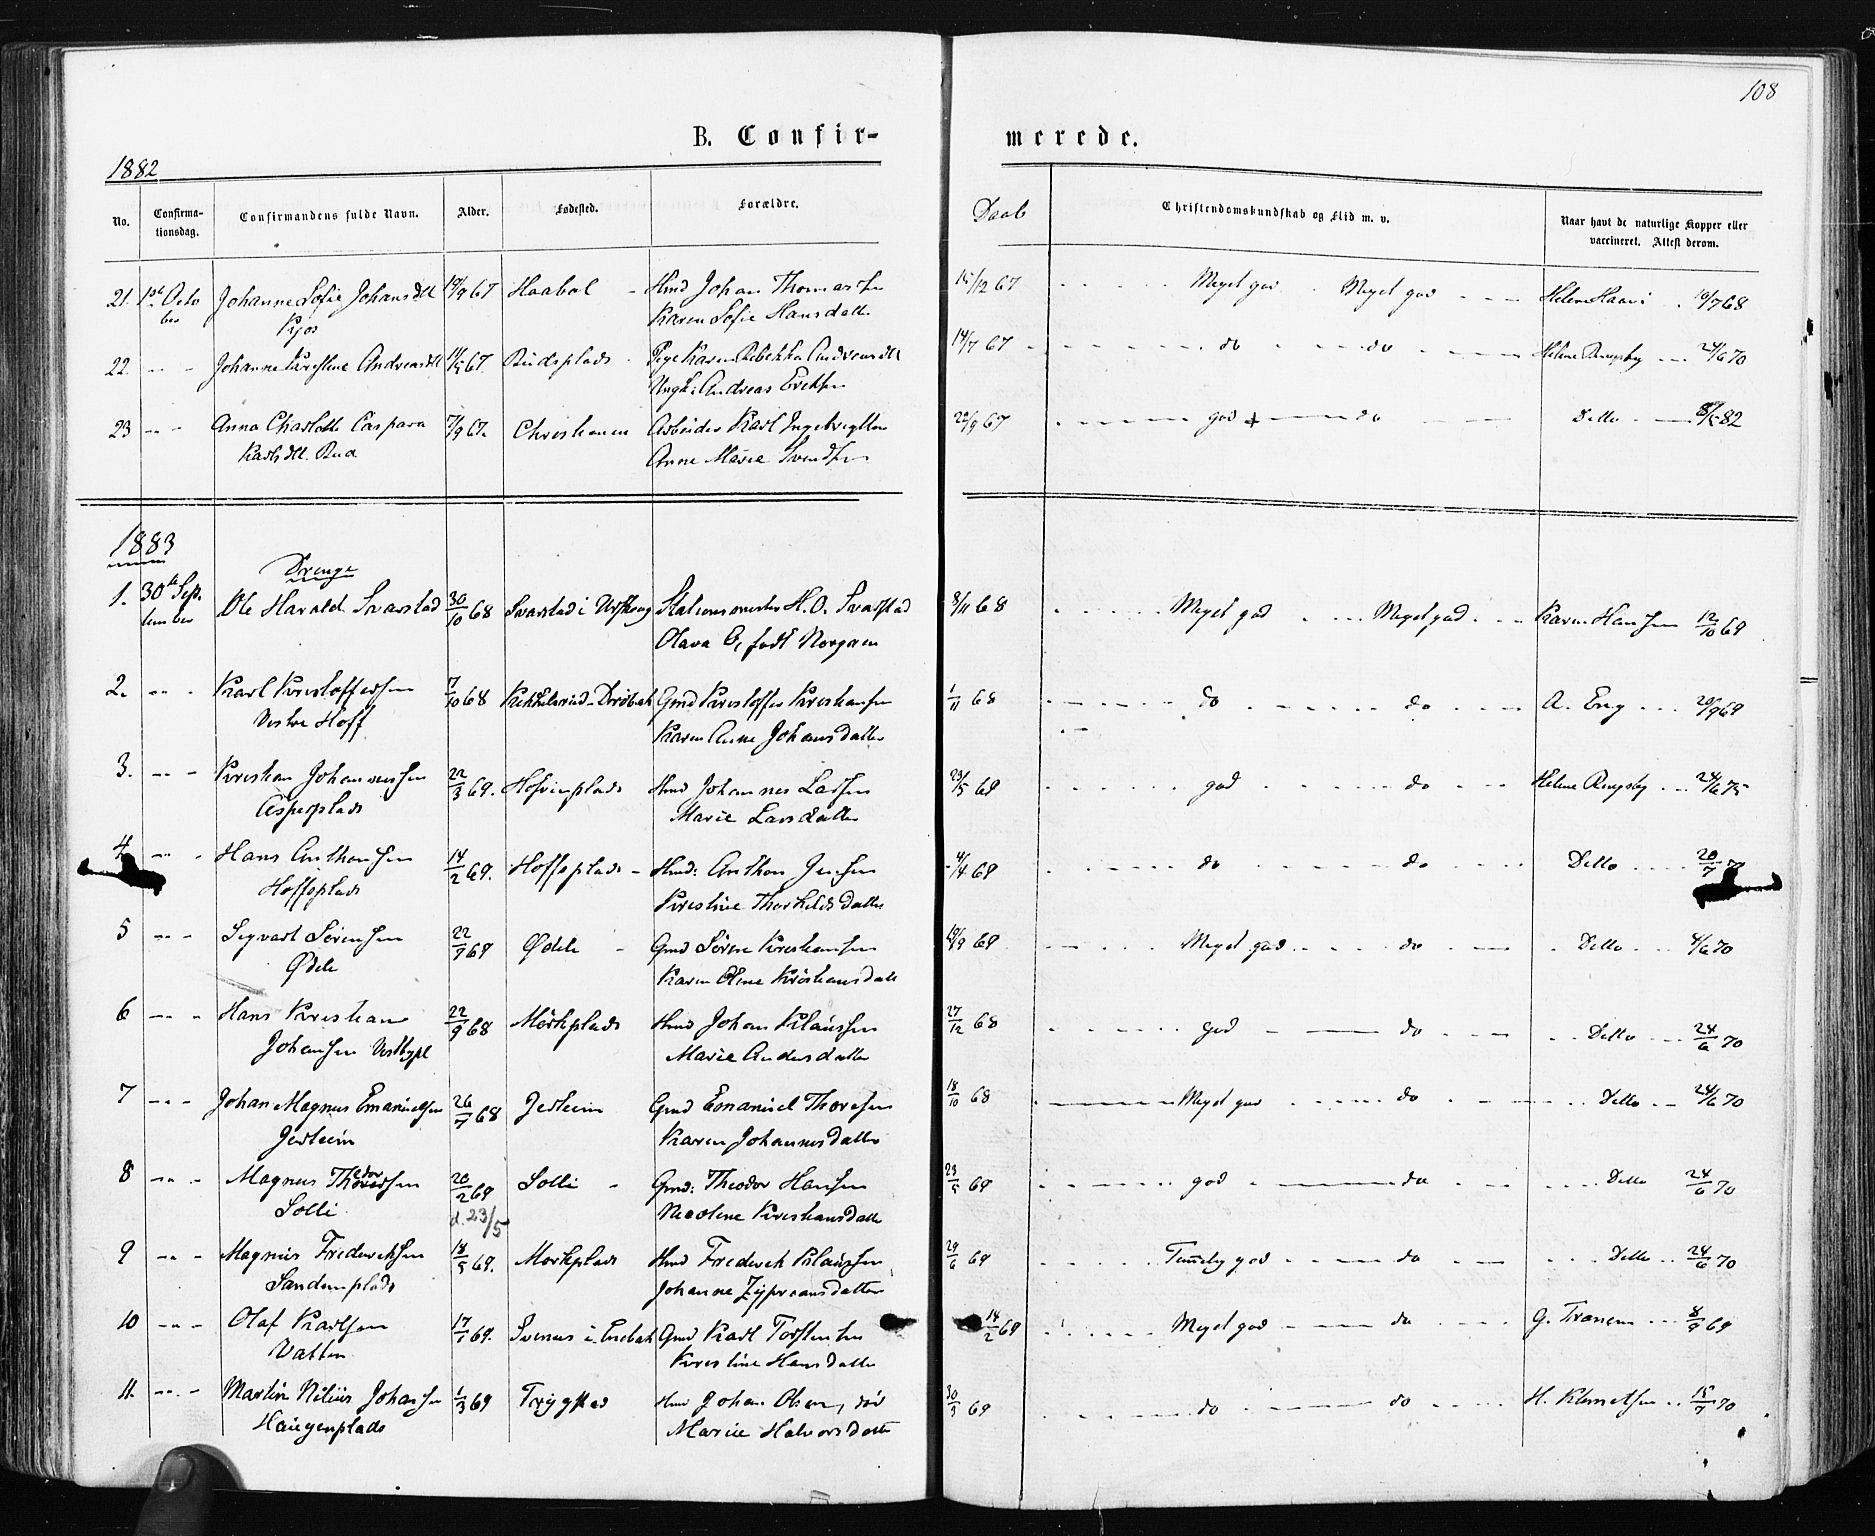 108
B. Confir- merede.
1882
No. Confirma-tionsdag. Confirmandens fulde Navn. Alder. Fødested. Forældre. Daab Christendomskundskab og Flid m. v. Naar havt de naturlige Kopper eller vaccineret. Attest derom.
21. 1ste Octo Johanne Sofie Johansdtl 19/9 67 Haabøl - Hmd Johan Thomassen 15/12 67 Meget god Meget god Helene Haavi 10/7 68
ber Kjos Karen Sofie Hansdatter
22. Johanne Kirstine Andreasdtl 67. Rudsplads Pige Karen Rebekka Andreasdtl 14/7 67 do do Helene Ringsby 24/6 70
Ungk: Andreas Eriksen
23 Anna Charlotte Caspara 7/9 67. Christiania Arbeider Karl Ingebrigtsen 22/9 67 god + do Ditto 82
Karlsdtl. Rud Anne Marie Svendsen
1883
Drenge
1. 30te Sep- Ole Harald Svarstad 30/10 68 Svarstad i Urskoug Stationsmester H. O. Svarstad 8/11 68 Meget god Meget god Karen Hansen 12/10 69
tember Olava O, født Norgren
2. Karl Kristoffersen 7/10 68 Drøbak Gmd Kristoffer Kristiansen 1/11 68 do do A. Eng 20/9 69
Vestre Hoff Karen Anne Johansdatter
3. Kristian Johannessen 22/3 69. Hofvinplads Hmd Johannes Larsen 23/5 69 god do Helene Ringsby 24/6 75
Aspesplads Marie Larsdatter
4. Hans Anthonsen 14/2 69. Hoffsplads - Hmd: Anthon Jensen 4/4 69 do do Ditto 20/7
Hoffsplads Kirstine Thorkildsdatter
5 Sigvart Sørensen 22/7 69 Ødele - Gmd Søren Kristiansen 19/9 69 Meget god do Ditto 4/6 70
Ødele Karen Oline Kristiansdatt
6 Hans Kristian 22/9 68 Mørkplads Hmd Johan Klausen 27/12 68 god do Ditto 24/6 70
Johansen Vestbypl Marie Andersdatter
7 Johan Magnus Emanuelsen 26/7 68 Jesteim Gmd Emanuel Thoresen 18/10 68 Meget god do Ditto 24/6 70
Jesteim Karen Johannesdatter
8 Magnus Theodorsen 20/2 69 Solli - Gmd: Theodor Hansen 23/5 69 god do Ditto 24/6 70
Solli d. 23/5 Nicoline Kristiansdatter
9 Magnus Frederiksen 18/5 69. Mørkplads Hmd Frederik Klausen 29/6 69 Temmelig god do Ditto 24/6 70
Sandumplads Johanne Zypriansdatter
10 Olaf Karlsen 17/1 69. Svenus i Gmd Karl Torstensen 14/2 69 Meget god do G. Tranem 8/9 69
Vatten Kirstine Hansdatter
11. Martin Nilius Johansen 1/3 69 Trygstad Hmd Johan Olsen, død 30/3 69 do do H. Klemetsen 15/7 70
Haugenplads Marie Halvorsdatter